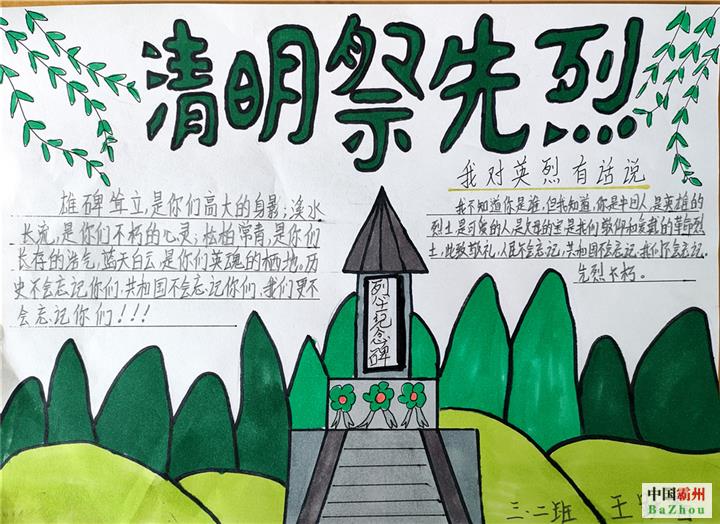 清明祭先烈
雄碑耸立,是你们高大的身影;溪水
长流,是你们不朽的心灵;松柏常青,是你们
长存的浩气,蓝天白云,是你们英魂的栖地。历
史不会忘记你们,共和国不会忘记你们、我们更不
会忘记你们!!!
我对英烈有话说
我不知道你是谁,但我知道,你是中国人,是英雄的
烈士,是可爱的人,是父母的宝,是我们敬仰和爱戴的革命烈
士,此致敬礼,人民不会忘记,共和国不会忘记,我们不会忘记。
先烈不朽。
烈士纪念碑
三.二班 王
中国霸州
BaZhou